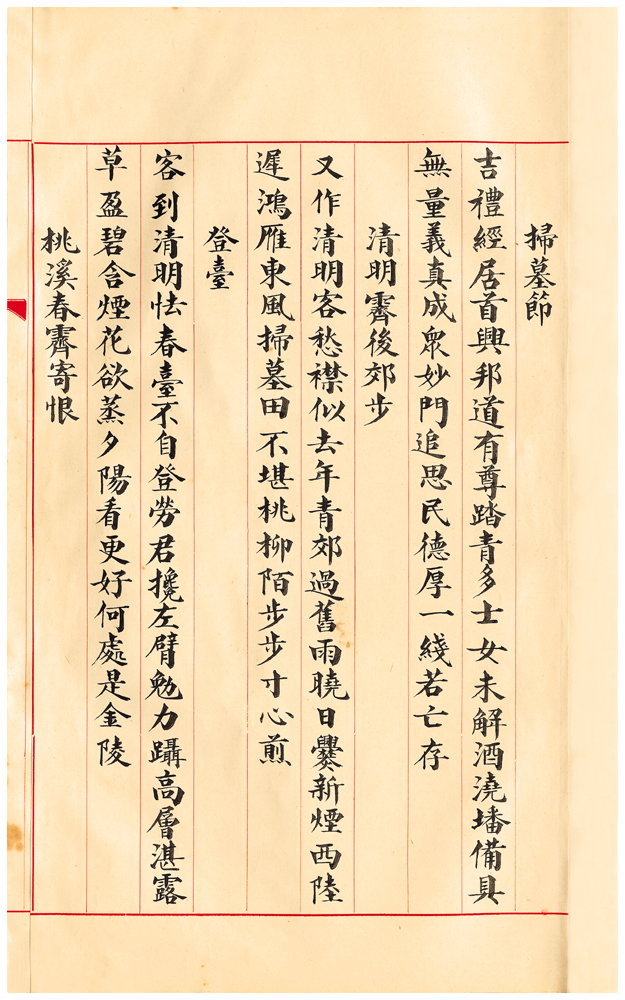 掃墓節
吉禮經居首興邦道有尊踏青多士女未解酒澆墦備具
無量義真成眾妙門追思民德厚一綫若亡存
清明霽後郊步
又作清明客愁襟似去年青郊過舊雨曉日爨新煙西陸
遲鴻雁東風掃墓田不堪桃柳陌步步寸心煎
登臺
客到清明怯春臺不自登勞君攙左臂勉力躡高層湛露
草盈碧含煙花欲蒸夕陽看更好何處是金陵
桃溪春霽寄恨